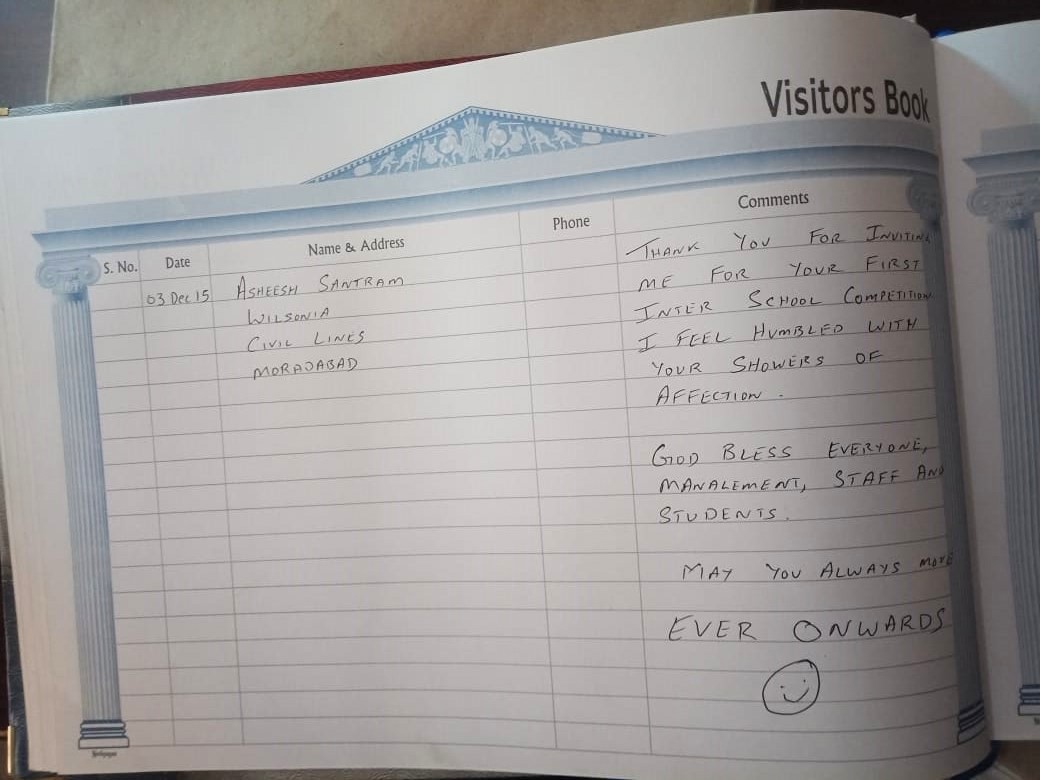 Visitors Book
S. No.
Date
Name & Address
Phone
Comments
03 Dec 15
ASHEESH SANTRAM
WILSONIA
CIVIL LINES
MORADABAD
THANK YOU FOR INVITING
ME FOR YOUR FIRST
INTER SCHOOL COMPETITION
I FEEL HUMBLED WITH
YOUR SHOWERS OF
AFFECTION.
GOD BLESS EVERYONE,
MANAGEMENT, STAFF AND
STUDENTS.
MAY YOU ALWAYS MOVE
EVER ONWARDS